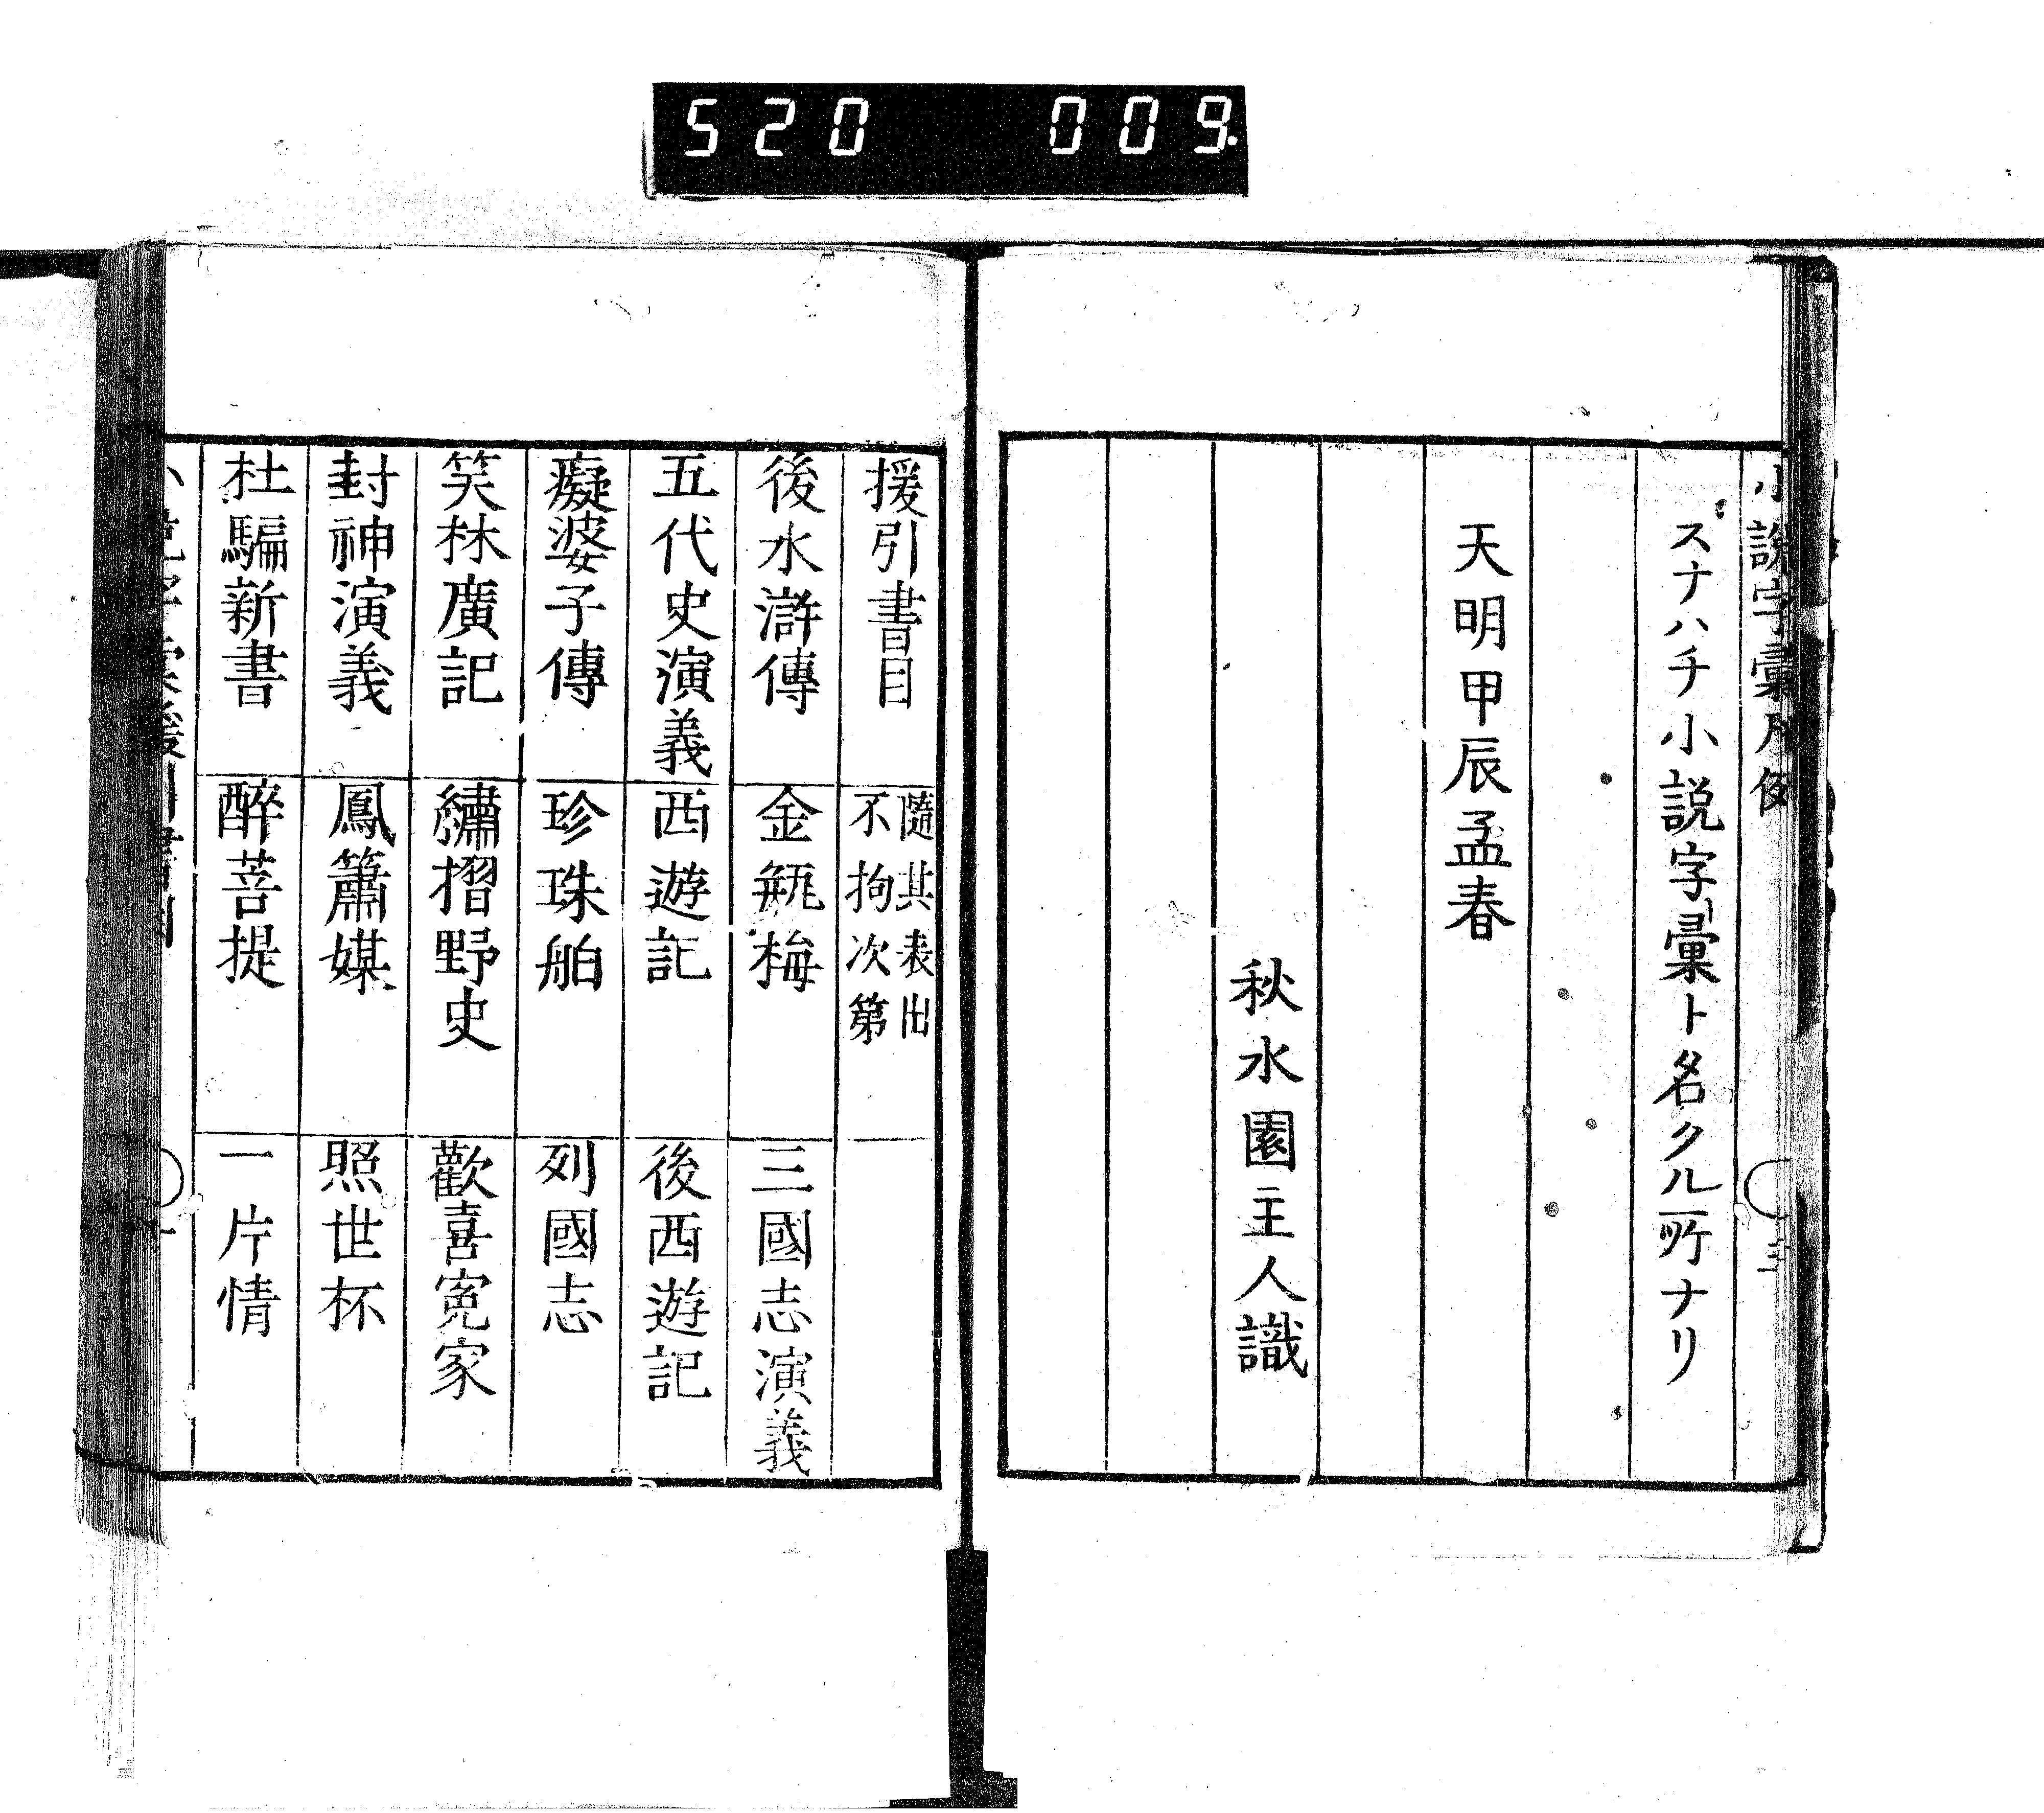 520 009.
小說字彙凡例
スナハチ小説字彙ト名クル所ナリ
天明甲辰孟春
秋水園主人識
援引書目 隨其表出 不拘次第
後水滸傳 金瓶梅 三國志演義
五代史演義 西遊記 後西遊記
癡婆子傳 珍珠舶 列國志
笑林廣記 繡摺野史 歡喜寃家
封神演義 鳳簫媒 照世杯
杜騙新書 醉菩提 一片情